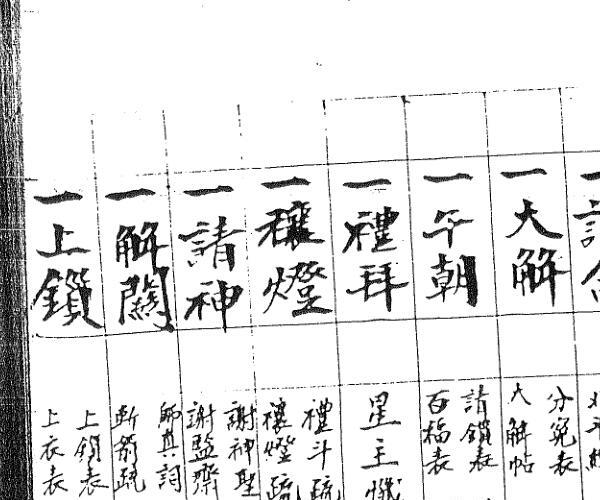 一大解
分冤表
大解帖
一午朝
請鎖表
百福表
一禮拜
星主懺
一禳燈
禮斗疏
禳燈疏
一請神
謝神聖
謝監齋
一解關
師真詞
斬箭疏
一上鎖
上鎖表
上衣表